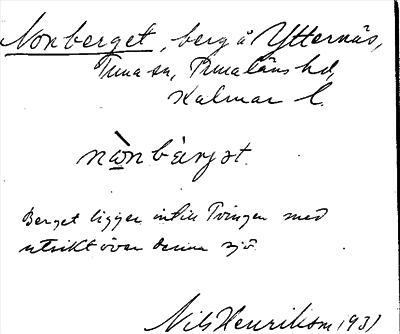 Nonberget, berg å Ytternäs,
Tuna sn, Tunaläns hd,
Kalmar l.
nὼ̱nbærjət.
Berget ligger intill Tvingen med
utsikt över denna sjö.
Nils Henrikson 1931